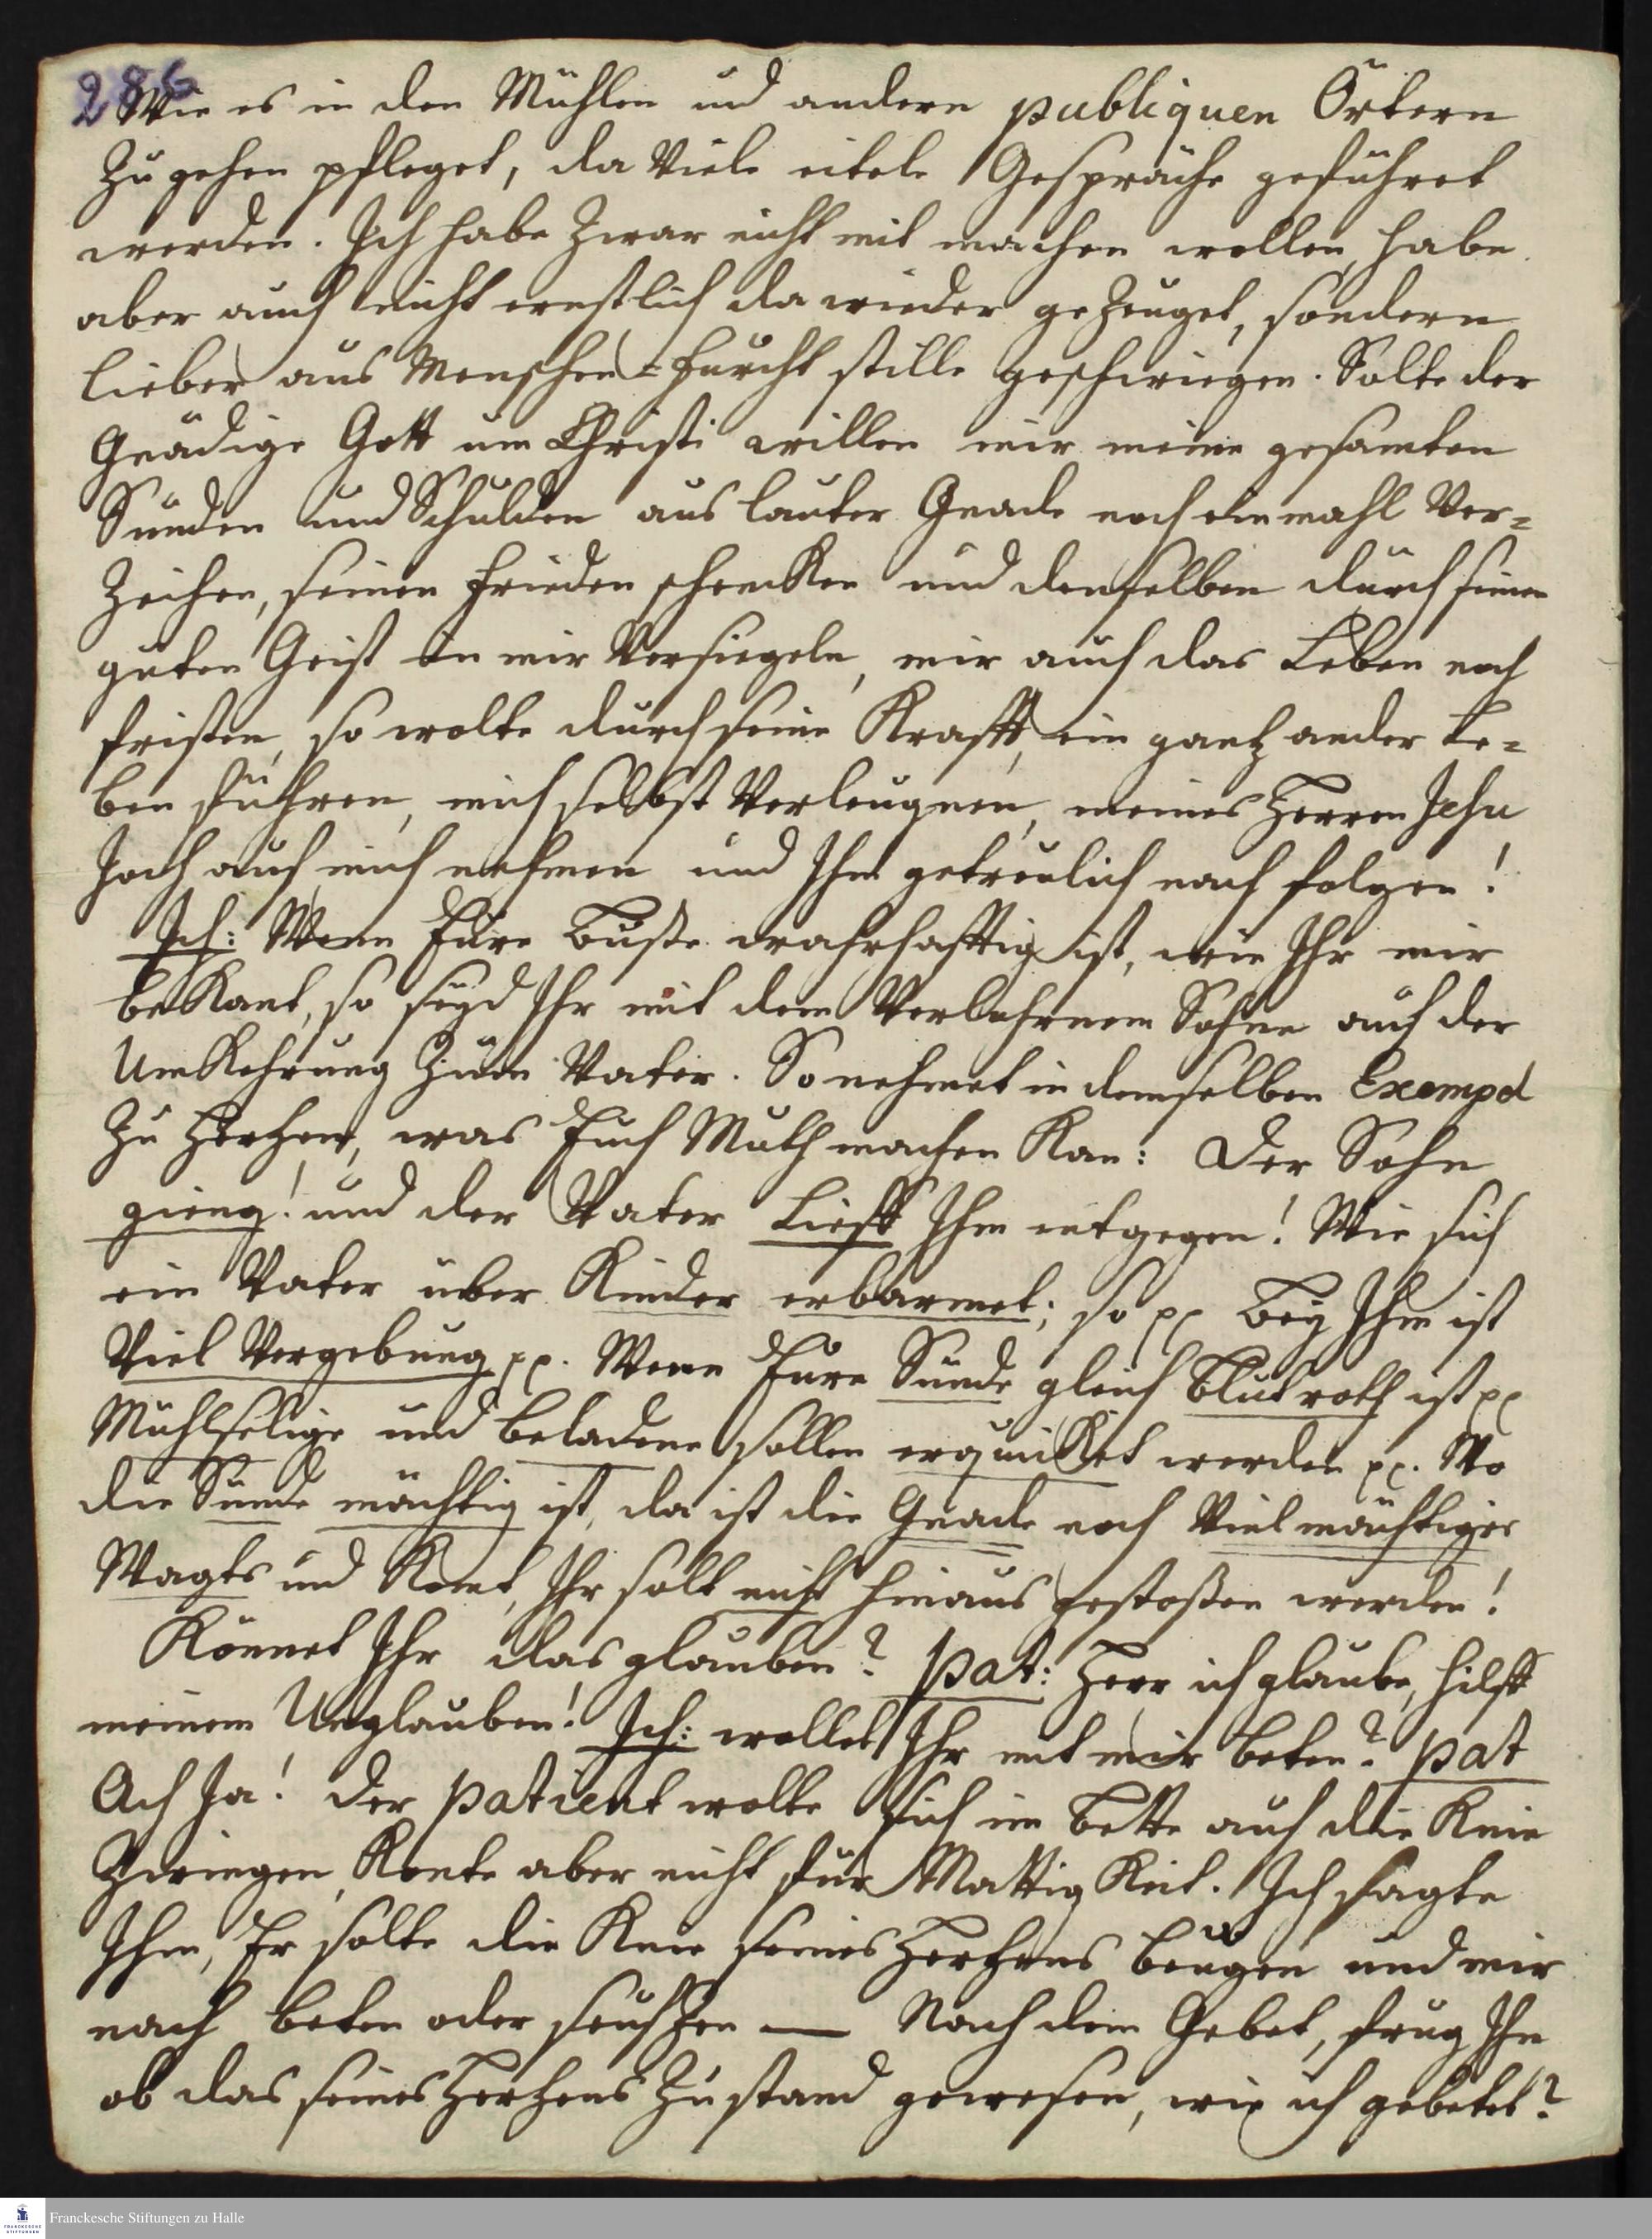 286
Wie es in den Mühlen und andern publiquen Örtern
Zu gehen pfleget, da Viele eitele Gespräche geführet
werden. Ich habe Zwar nicht mit machen wollen, habe
aber auch nicht ernstlich da wieder geZeuget, sondern
lieber aus Menschen=furcht stille geschwiegen. Solte der
Gnädige Gott um Christi willen mir meine gesamten
Sünden und Schulden aus lauter Gnade noch einmahl Ver=
Zeihen, seinen Frieden schencken und denselben durch seinen
guten Geist in mir Versiegeln, mir auch das Leben noch
fristen, so wolte durch seine Krafft, ein gantz ander Le=
ben führen, mich selbst Verleugnen, meines Herren Jesu
Joch auf mich nehmen und Ihm getreulich nach folgen!
Ich: Wenn Eure Buße wahrhafftig ist, wie Ihr mir
beKant, so seyd Ihr mit dem Verlohrnem Sohne auf der
UmKehrung Zum Vater. So nehmet in demselben Exempel
Zu Hertzen, was Euch Muth machen Kan: Der Sohn
gieng! und der Vater Lieff Ihm entgegen! Wie sich
ein Vater über Kinder erbarmet; so pp Bey Ihm ist
Viel Vergebung pp. Wenn Eure Sünde gleich Blutroth ist pp
Mühlselige und beladene sollen erquiKet werden pp. Wo
die Sünde mächtig ist, da ist die Gnade noch Viel mächtiger
Wagts und Komt, Ihr solt nicht hinaus gestoßen werden!
Könnet Ihr das glauben? pat: Herr ich glaube, hilff
meinem Unglauben! Ich: wollet Ihr mit mir beten? pat
Ach Ja! Der patient wolte sich im Bette auf die Knie
Zwingen, Konte aber nicht für MattigKeit. Ich sagte
Ihm, Er solte die Knie seines Hertzens beugen und mir
nach beten oder seuffzen — Nach dem Gebet, frug Ihn
ob das seines Hertzens Zustand gewesen, wie ich gebetet?
Franckesche Stiftungen zu Halle